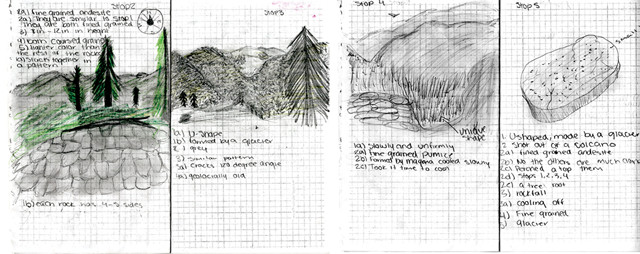 Stop 2
2A) Fine grained andesite
2a) They are similar to stop 1
They are both fined grained
3) 7in - 12in in height
4) both coursed grained
5) lighter color than
the rest of the rocks
6) Stacks together in
a pattern
1b) each rock has 4-5 sides
Stop 3
1a) U-Shape
1b) formed by a glacier
2) grey
3) Similar pattern
3a) cracks 120 degree angle
Stop 4
unique
shape
1a) Slowly and uniformly
2a) fine grained pumice
2b) formed by magma cooled slowly
2c) Took it time to cool
Stop 5
1. U shaped, made by a glacier
2. Shot out of a volcano
2a) fined grained andesite
2b) No the others are much
2c) Perched a top them
2d) Stops 1, 2, 3, 4
2e) a tree root
3) rockfall
3a) cooling off
4) Fine grained
5) glacier